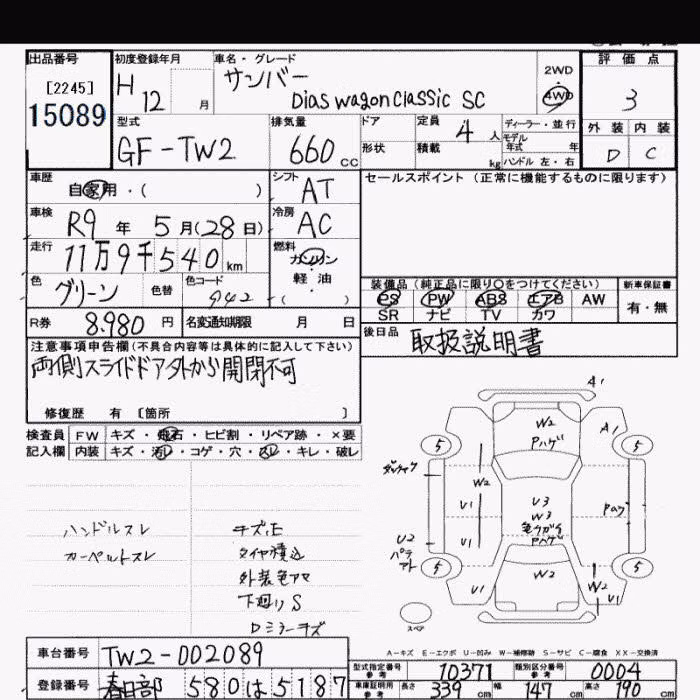 出品番号 初度登録年月 車名・グレード 評価点
[2245] H 12 月 サンバー 2WD
15089 Dias wagon classic SC 4WD 3
型式 排気量 ドア 定員 4 人 ディーラー・並行 外装 内装
GF-TW2 660 cc 形状 積載 kg モデル 年式 年 D C
ハンドル 左・右
車歴 自家用・( ) シフト AT セールスポイント(正常に機能するものに限ります)
車検 R9 年 5 月(28 日) 冷房 AC
走行 11万9千540 km 燃料 ガソリン
色 グリーン 色替 色コード 942 軽油 ( )
装備品(純正品に限り○をつけてください) 新車保証書
PS PW ABS エアB AW 有・無
SR ナビ TV カワ
R券 8.980 円 名変通知期限 月 日 後日品 取扱説明書
注意事項申告欄(不具合内容等は具体的に記入して下さい)
両側スライドドア外から開閉不可
修復歴 有 [箇所 ]
検査員 FW キズ・飛石・ヒビ割・リペア跡・×要
記入欄 内装 キズ・汚レ・コゲ・穴・スレ・キレ・破レ
A1
W2 A1
Pハゲ
5 5
W2
U1 U3 Pハゲ
W3
U1
U2 Pハゲ
5 5
U1 W2 W2 U1
スペア
ハンドルスレ キズ、E
カーペットスレ タイヤ積込
外装色アセ
下廻りS
Dミラーキズ
A-キズ E-エクボ U-凹み W-補修跡 S-サビ C-腐食 XX-交換済
車台番号 TW2-002089
型式指定番号 参考 10371 類別区分番号 参考 0004
登録番号 春日部 580 は 5187
車庫証明用 参考 長さ 339 cm 幅 147 cm 高さ 190 cm